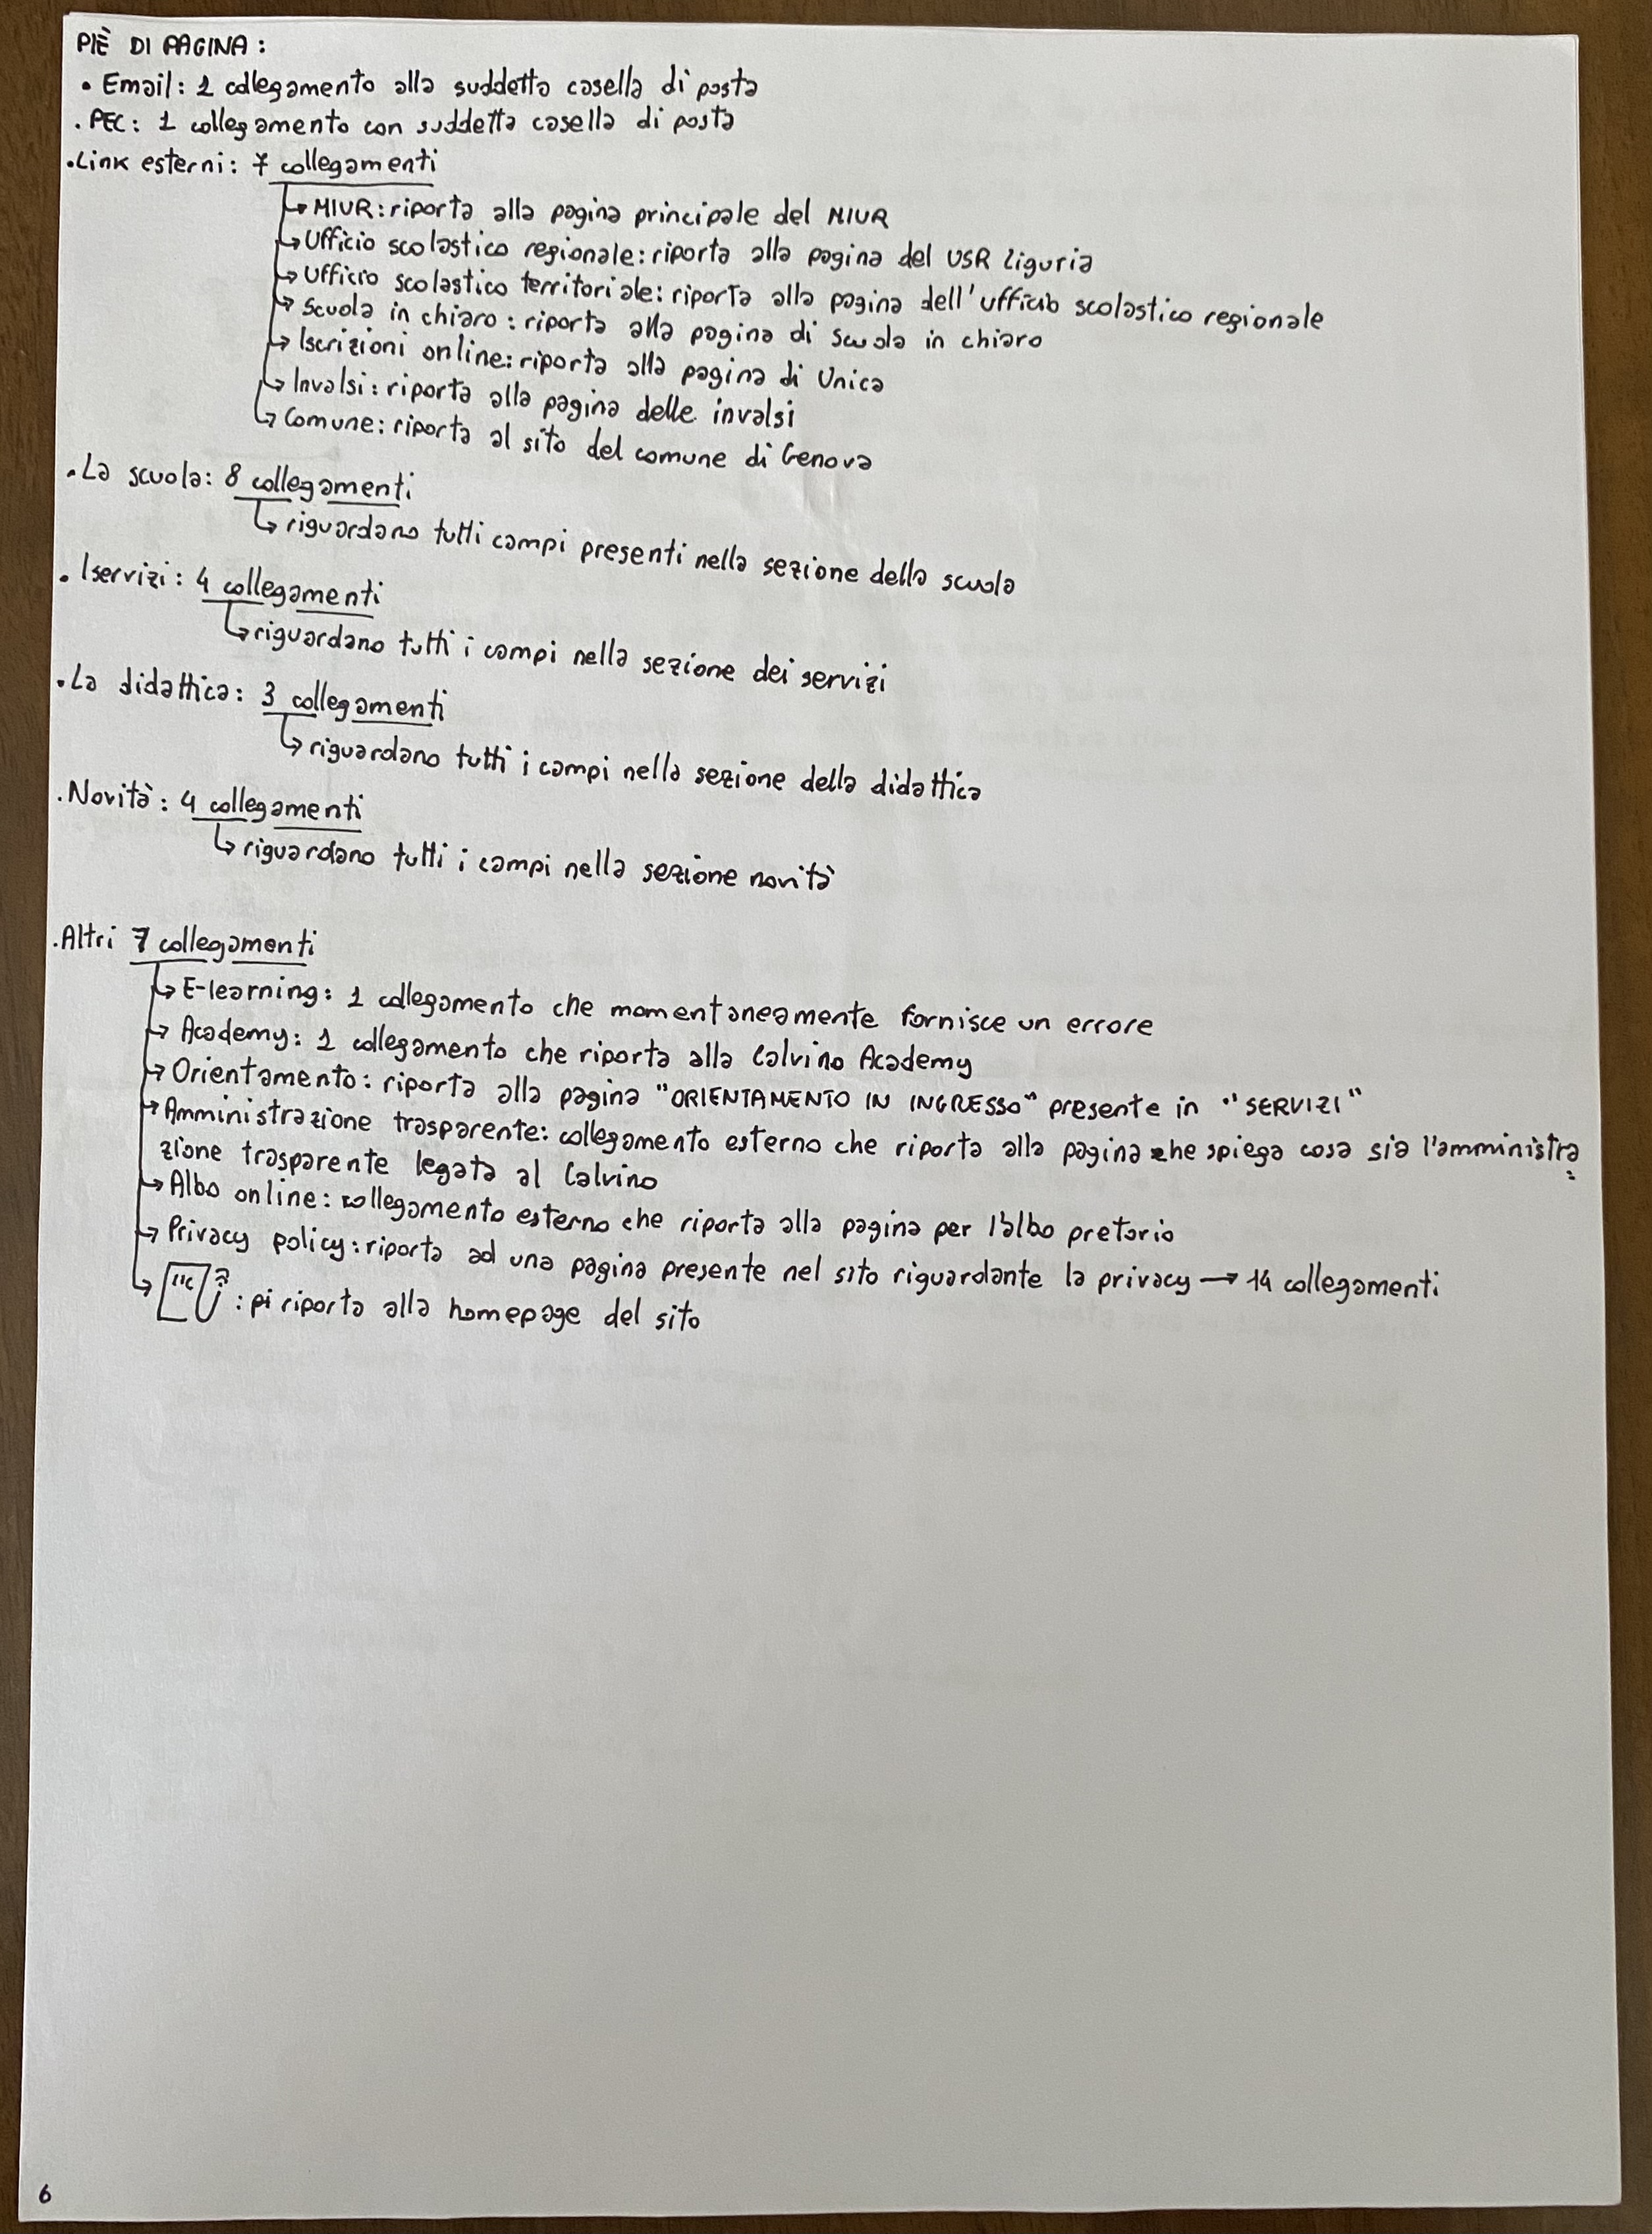 PIÈ DI PAGINA:
• Email: 1 collegamento alla suddetta casella di posta
• PEC: 1 collegamento con suddetta casella di posta
• Link esterni: 7 collegamenti
↳ MIUR: riporta alla pagina principale del MIUR
↳ Ufficio scolastico regionale: riporta alla pagina del USR Liguria
↳ Ufficio scolastico territoriale: riporta alla pagina dell'ufficio scolastico regionale
↳ Scuola in chiaro: riporta alla pagina di scuola in chiaro
↳ Iscrizioni online: riporta alla pagina di Unica
↳ Invalsi: riporta alla pagina delle invalsi
↳ Comune: riporta al sito del comune di Genova
• La scuola: 8 collegamenti
↳ riguardano tutti campi presenti nella sezione della scuola
• I servizi: 4 collegamenti
↳ riguardano tutti i campi nella sezione dei servizi
• La didattica: 3 collegamenti
↳ riguardano tutti i campi nella sezione della didattica
• Novità: 4 collegamenti
↳ riguardano tutti i campi nella sezione novità
• Altri 7 collegamenti
↳ E-learning: 1 collegamento che momentaneamente fornisce un errore
↳ Academy: 1 collegamento che riporta alla Calvino Academy
↳ Orientamento: riporta alla pagina "ORIENTAMENTO IN INGRESSO" presente in "SERVIZI"
↳ Amministrazione trasparente: collegamento esterno che riporta alla pagina che spiega cosa sia l'amministra
zione trasparente legata al Calvino
↳ Albo online: collegamento esterno che riporta alla pagina per l'albo pretorio
↳ Privacy policy: riporta ad una pagina presente nel sito riguardante la privacy → 14 collegamenti
↳ : pi riporta alla homepage del sito
6